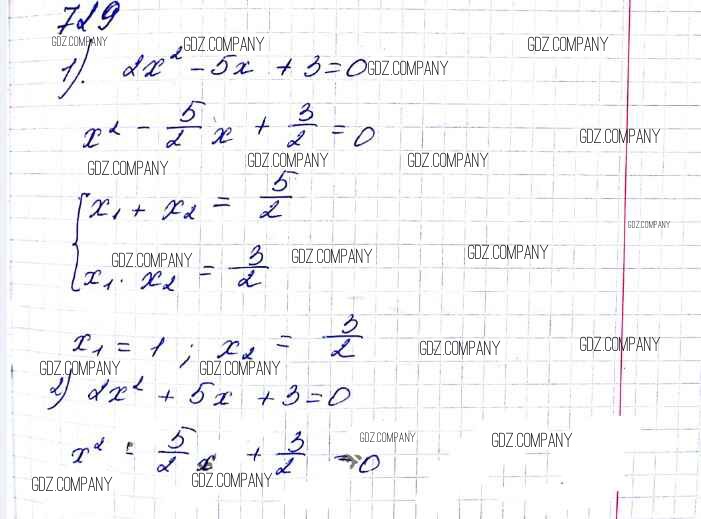 729
GDZ.COMPANY GDZ.COMPANY GDZ.COMPANY
1). 2x² - 5x + 3 = 0 GDZ.COMPANY
x² - 5/2 x + 3/2 = 0 GDZ.COMPANY
GDZ.COMPANY GDZ.COMPANY GDZ.COMPANY
{ x₁ + x₂ = 5/2
GDZ.COMPANY
GDZ.COMPANY GDZ.COMPANY GDZ.COMPANY
x₁ · x₂ = 3/2
x₁ = 1 ; x₂ = 3/2 GDZ.COMPANY GDZ.COMPANY
GDZ.COMPANY GDZ.COMPANY
2) 2x² + 5x + 3 = 0
GDZ.COMPANY GDZ.COMPANY
x² 5/2 x + 3/2 = 0
GDZ.COMPANY GDZ.COMPANY